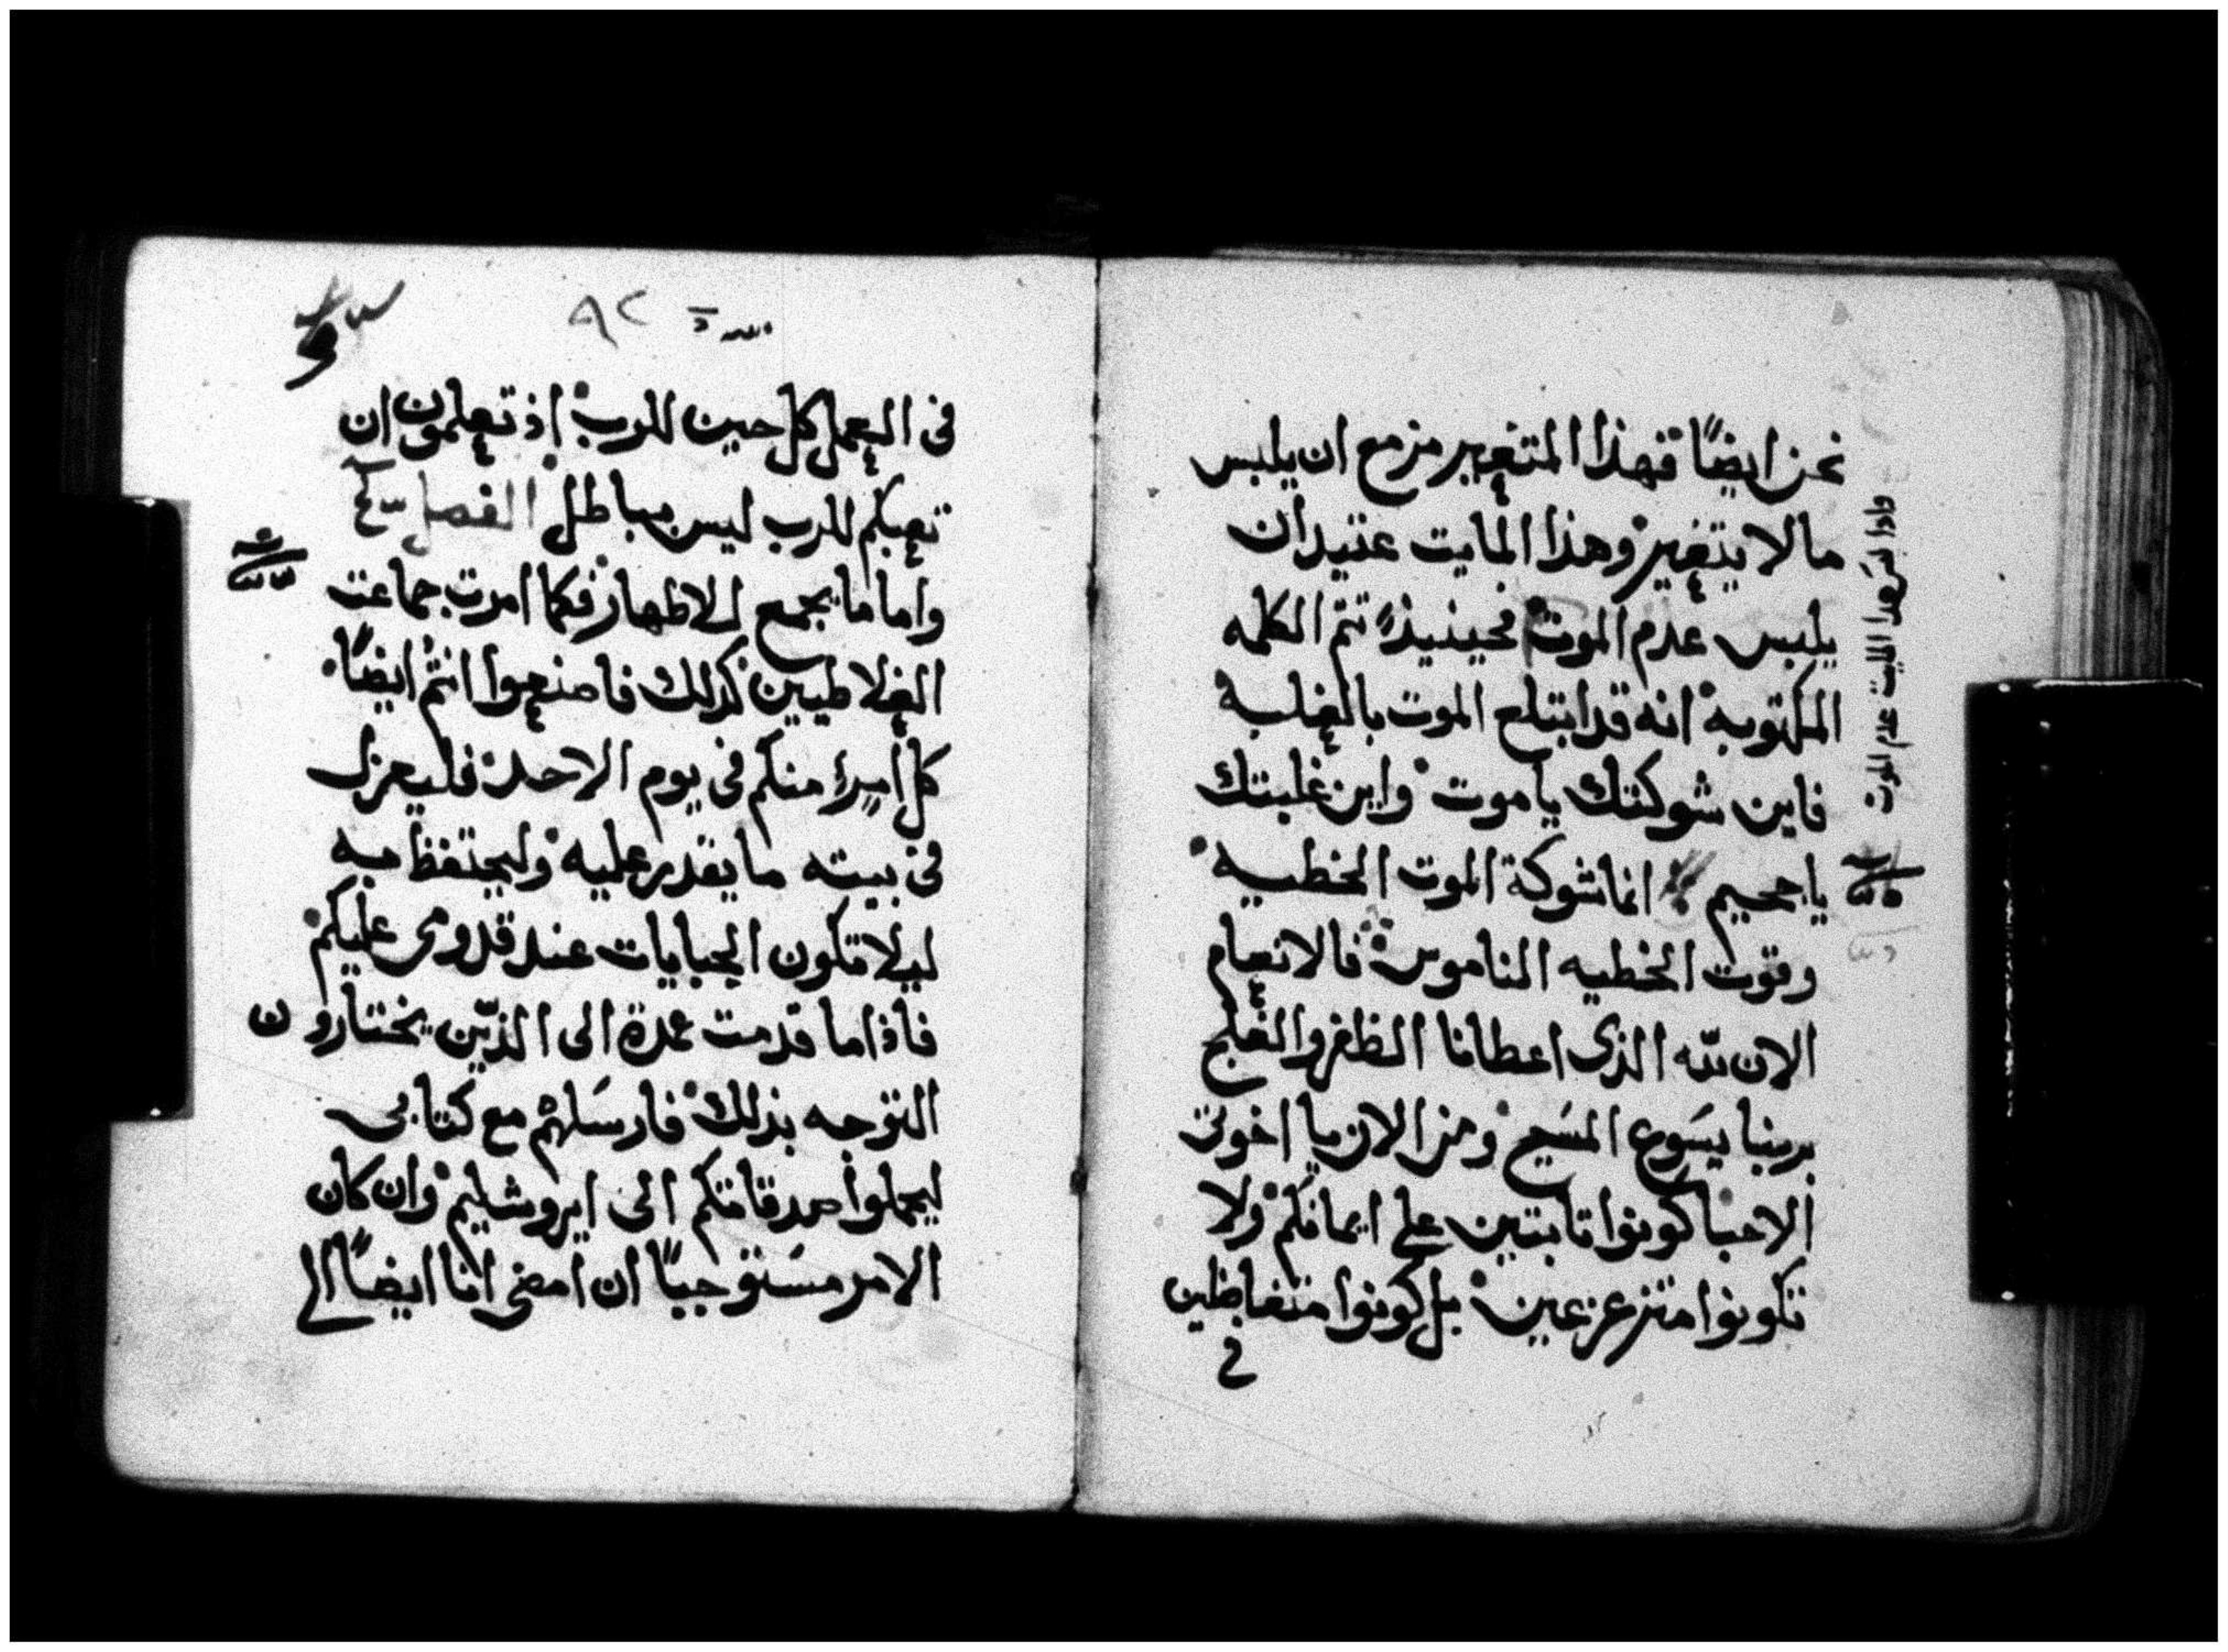 نحن ايضًا فهذا المتغير مزمع ان يلبس
ما لا يتغير وهذا المايت عتيد ان
يلبس عدم الموت فحينيذٍ تتم الكلمه
المكتوبه انه قد ابتلع الموت بالغلبه
فاين شوكتك يا موت واين غلبتك
يا جحيم انما شوكة الموت الخطيه
وقوت الخطيه الناموس فالانعام
الان لله الذى اعطانا الظفر والفلج
بربنا يسوع المسيح ومن الان يا اخوتى
الاحبا كونوا تابتين على ايمانكم ولا
تكونوا متزعزعين بل كونوا متفاضلين
فى
واذا لبس هدا المايت عدم الموت
٩٢
فى العمل كل حين للرب اذ تعلمون ان
تعبكم للرب ليس بباطل الفصل
واما ما يجمع للاطهار فكما امرت جماعت
الغلاطيين كذلك فاصنعوا انتم ايضًا
كل امرءٍ منكم فى يوم الاحد فليعزل
فى بيته ما يقدر عليه وليحتفظ به
ليلا تكون الجبايات عند قدومى عليكم
فاذا ما قدمت عمدة الى الذين يختارون
التوجه بذلك فارسلهم مع كتابى
ليحملوا صدقاتكم الى ايروشليم وان كان
الامر مستوجبًا ان امضى انا ايضًا الى